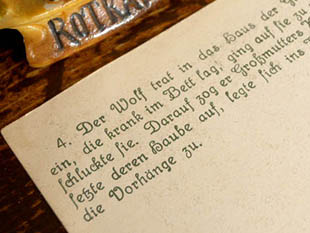 ROTKÄ
4. Der Wolf trat in das Haus der G
ein, die krank im Bett lag, ging auf sie zu
schluckte sie. Darauf zog er Großmutters
setzte deren Haube auf, legte sich ins
die Vorhänge zu.